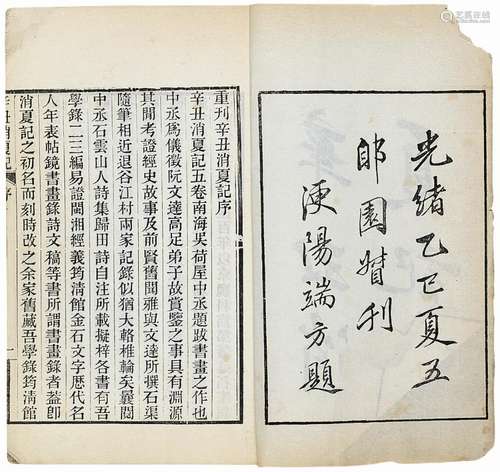 光緒乙巳夏五
郋園刊
浭陽端方題
重刊辛丑消夏記序
辛丑消夏記五卷南海吳荷屋中丞題跋書畫之作也
中丞爲儀徵阮文達高足弟子故賞鑒之事具有淵源
其間考證經史故事及前賢舊聞雅與文達所撰石渠
隨筆相近退谷江村兩家記錄似猶大輅椎輪矣曩閱
中丞石雲山人詩集歸田詩自注所載擬梓各書有吾
學錄二三編易證閩湘經義筠淸館金石文字歷代名
人年表帖鏡書畫錄詩文稿等書所謂書畫錄者葢卽
消夏記之初名而刻時改之余家舊藏吾學錄筠淸館
辛丑消夏記 序 一